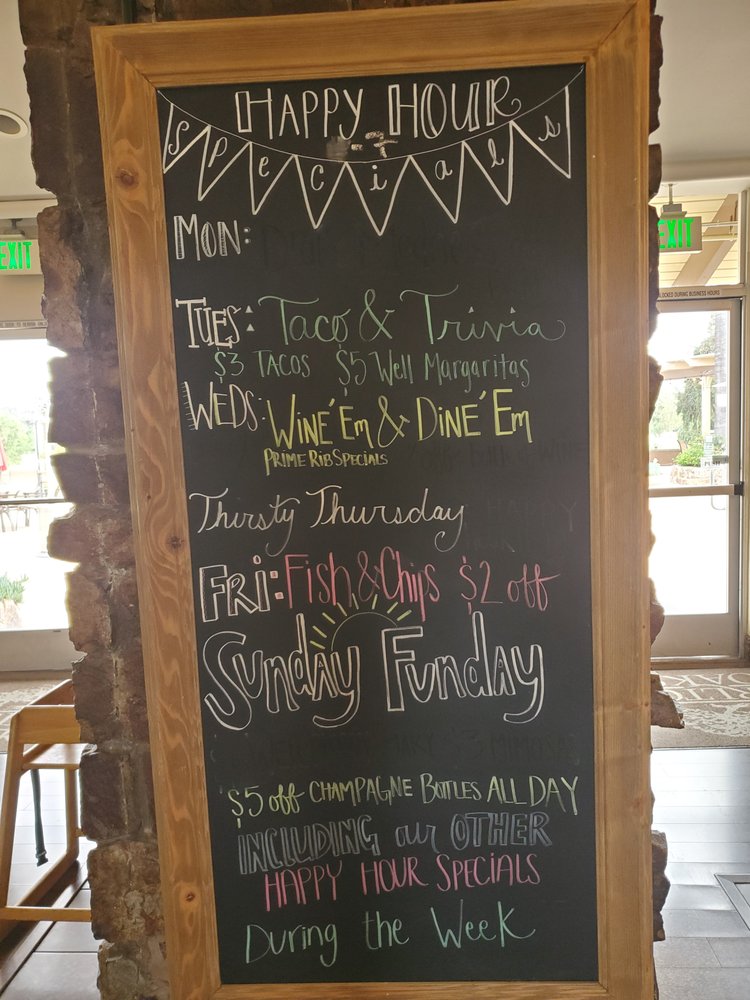 HAPPY HOUR
-7
Specials
EXIT
EXIT
MON:
LOCKED DURING BUSINESS HOURS
TUES: Taco & Trivia
$3 TACOS $5 Well Margaritas
WEDS: WINE'EM & DINE'EM
PRIME RIB SPECIALS
Thirsty Thursday
FRI: Fish & Chips $2 off
Sunday Funday
$5 off CHAMPAGNE BOTTLES ALL DAY
INCLUDING our OTHER
HAPPY HOUR SPECIALS
During the Week